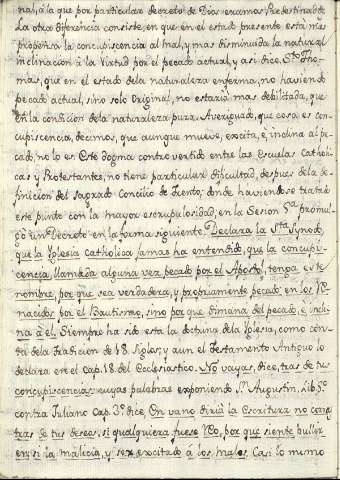 nal, á la que por particular decreto de Dios eramos Predestinados.
La otra diferencia consiste, en que en el estado presente está mas
propensa la concupiscencia al mal, y mas disminuida la natural
inclinacion á la virtud por el pecado actual, y asi dice Sto. Tho-
mas, que en el estado de la naturaleza enferma, no haviendo
pecado actual, sino solo Original, no estaria mas debilitada, que
en la condicion de la naturaleza pura. Averiguado, que cosa es con-
cupiscencia, decimos, que aunque mueve, excita, è inclina al pe-
cado, no lo es. Este dogma controvertido entre las Escuelas Catholi-
cas y Protestantes, no tiene particular dificultad, despues de la de-
finicion del sagrado Concilio de Trento, donde haviendose tratado
este punto con la mayor escrupulosidad, en la Sesion 5ª promul-
gó un Decreto en la forma siguiente. Declara la Sta. Synodo,
que la Iglesia Catholica jamas ha entendido, que la concupis-
cencia, llamada alguna vez pecado por el Apostol, tenga este
nombre, por que sea verdadera, y propriamente pecado en los Re-
nacidos por el Bautismo, sino por que dimana del pecado, e incli-
na à él. Siempre ha sido esta la doctrina de la Iglesia, como cons-
ta de la tradicion de 18. Siglos; y aun el Testamento Antiguo lo
declara en el cap. 18. del Ecclesiastico. No vayas, dice, tras de tus
concupiscencias: cuyas palabras exponiendo Sn. Augustin, Lib. 5º
contra Juliano Cap. 3º dice, En vano diria la Escritura no vayas
tras de tus deseos, si qualquiera fuese Reo, por que siente bullir
en si la malicia, y ser excitado à los males. Casi lo mismo